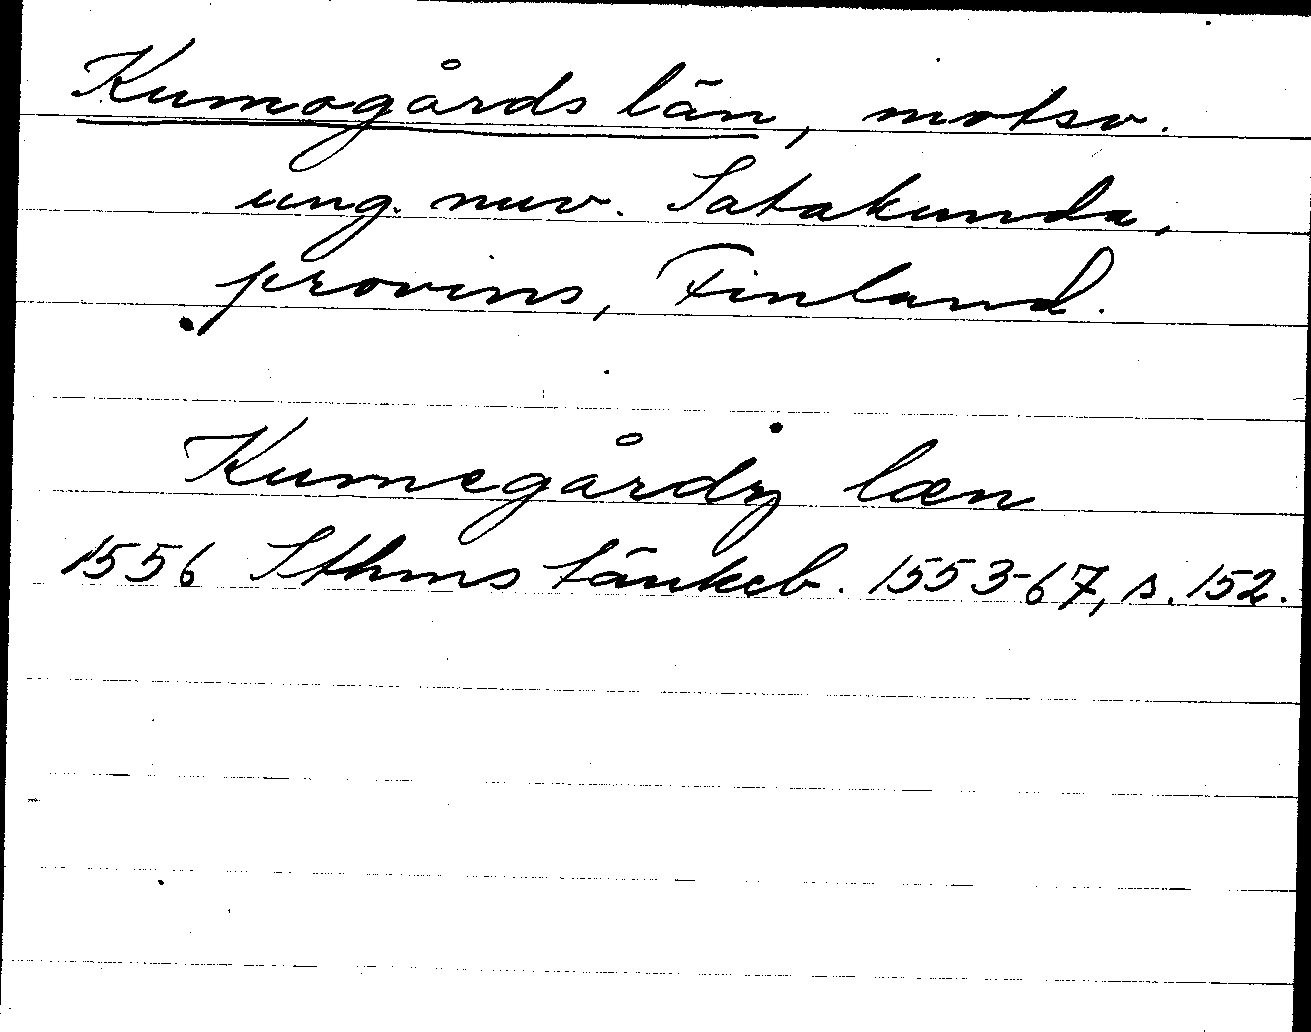 Kumogårds län, motsv.
ung. nuv. Satakunda,
provins, Finland.
Kumegårdz læn
1556 Sthms tänkeb. 1553-67, s. 152.